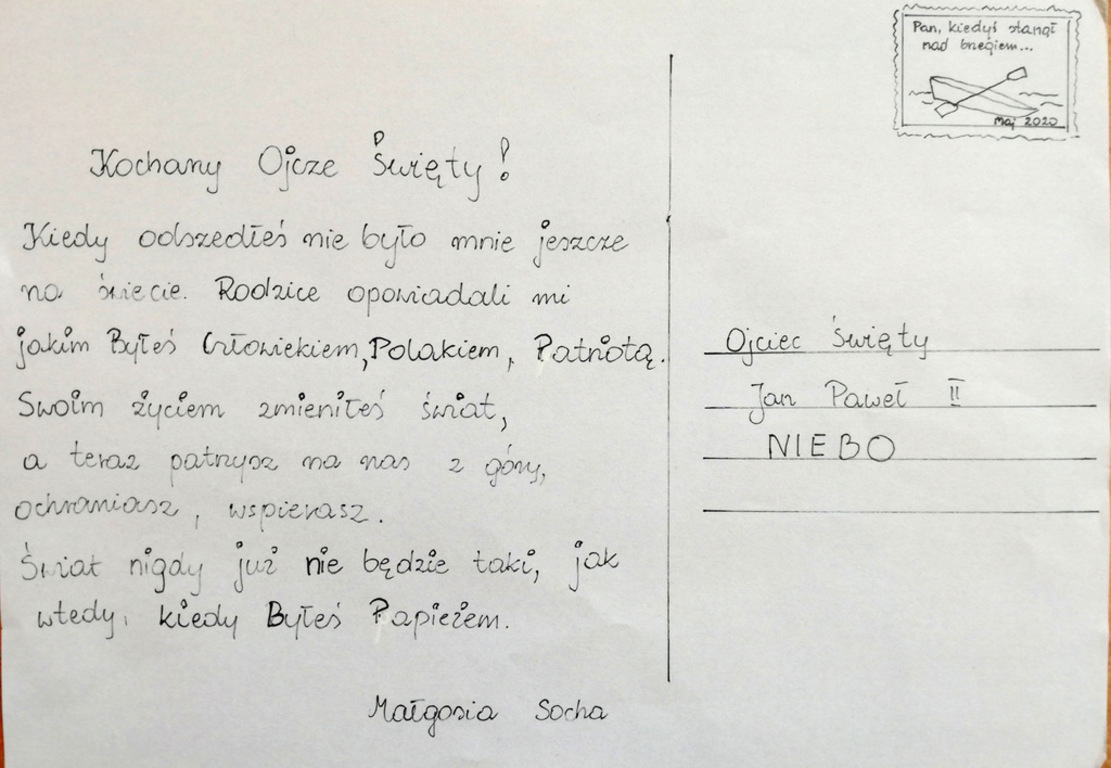 Pan, kiedyś stanął
nad brzegiem...
Maj 2020
Kochany Ojcze Święty!
Kiedy odszedłeś nie było mnie jeszcze
na świecie. Rodzice opowiadali mi
jakim Byłeś Człowiekiem, Polakiem, Patriotą.
Swoim życiem zmieniłeś świat,
a teraz patrzysz na nas z góry,
ochraniasz, wspierasz.
Świat nigdy już nie będzie taki, jak
wtedy, kiedy Byłeś Papieżem.
Małgosia Socha
Ojciec Święty
Jan Paweł II
NIEBO